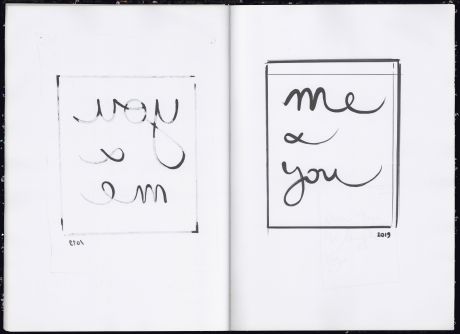 you
&
me
2019
me
&
you
2019